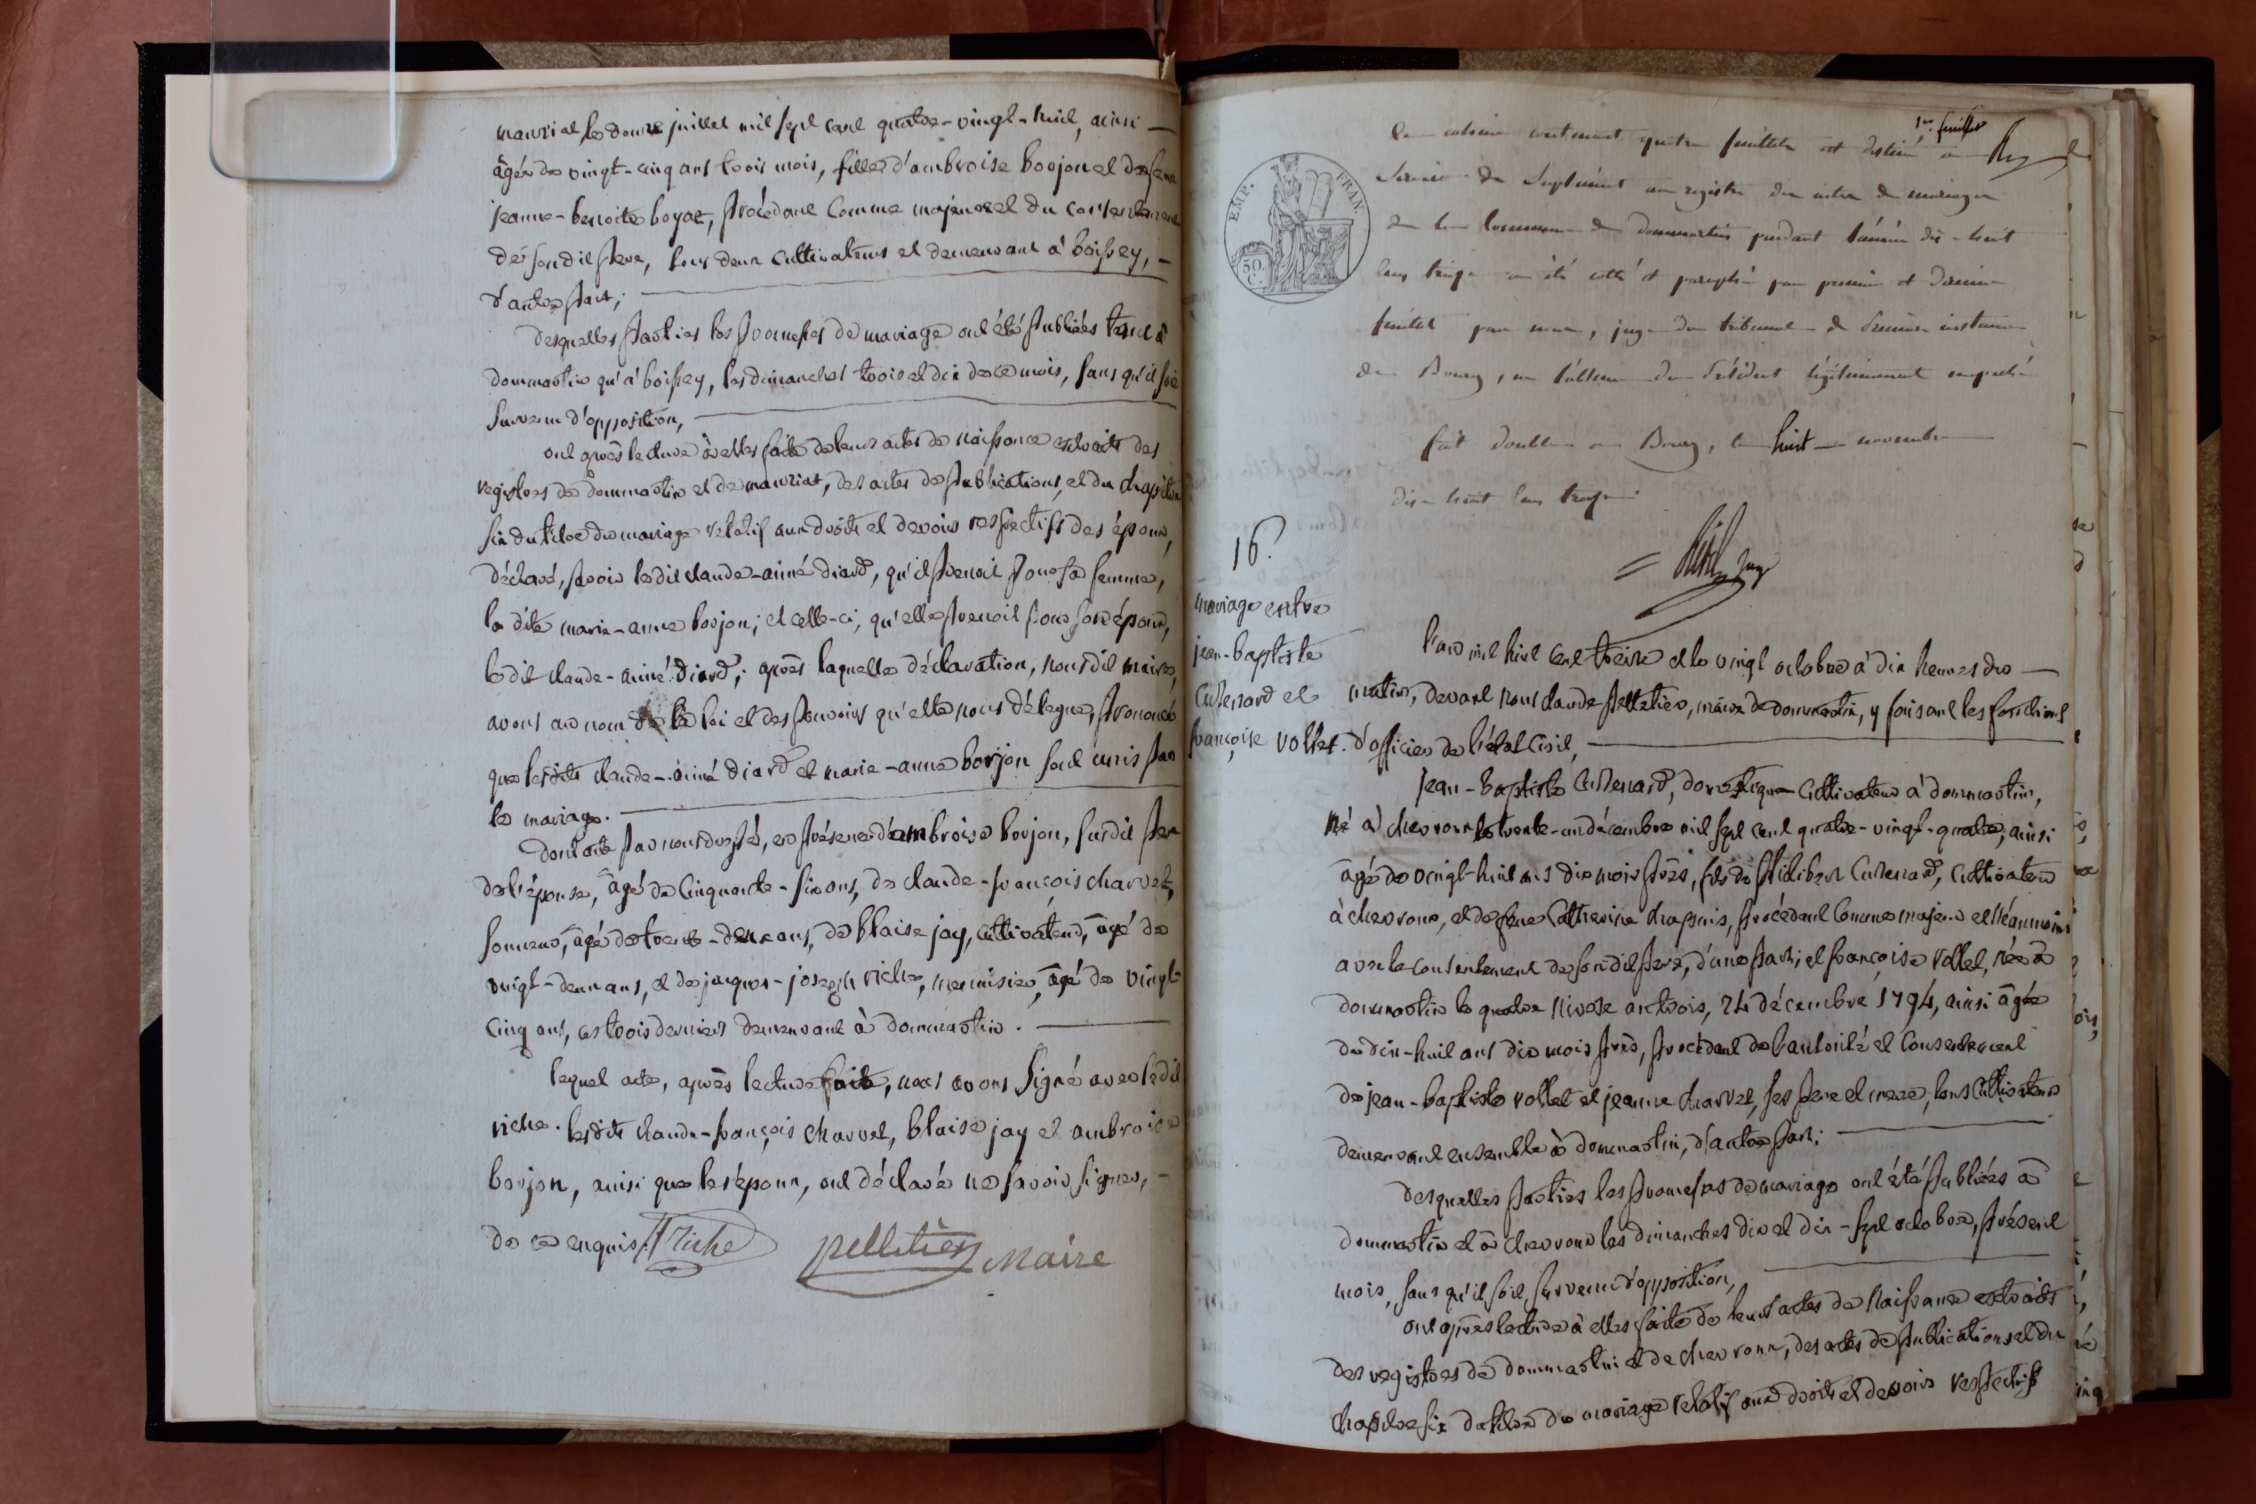 mauriat le douze juillet mil sept cent quatre-vingt-huit, ainsi
âgée de vingt-cinq ans trois mois, fille d'ambroise borjon et de feue
jeanne-benoite boyat, procédant comme majeure et du consentement
de son dit père, tous deux cultivateurs et demeurant à boissey,
d'autre part;
desquelles parties les promesses de mariage ont été publiées tant à
dommartin qu'à boissey, les dimanches trois et dix de ce mois, sans qu'il soit
survenu d'opposition,
ont après lecture à elles faite de leurs actes de naissance extraits des
registres de dommartin et de mauriat, des actes de publications, et du chapitre
six du titre du mariage relatif aux droits et devoirs respectifs des époux,
déclaré, savoir ledit claude-aimé diard, qu'il prenoit pour sa femme,
la dite marie-anne borjon; et celle-ci, qu'elle prenoit pour son époux,
ledit claude-aimé diard; après laquelle déclaration, nous dit maire,
avons au nom de la loi et des pouvoirs qu'elle nous délegue, prononcé
que lesdits claude-aimé diard et marie-anne borjon sont unis par
le mariage.
dont acte par nous dressé, en présence d'ambroise borjon, susdit père
de l'épouse, âgé de cinquante-six ans, de claude-françois charvet,
sonneur, âgé de trente-deux ans, de blaise jay, cultivateur, âgé de
vingt-deux ans, et de jacques-joseph riche, menuisier, âgé de vingt
cinq ans, ces trois derniers demeurant à dommartin.
lequel acte, après lecture faite, nous avons signé avec ledit
riche. lesdits claude-françois charvet, blaise jay et ambroise
borjon, ainsi que les époux, ont déclaré ne savoir signer,
de ce enquis. Riche pelletier Maire
1er feuillet
contenant quatre feuillets et destiné à
servir de supplément au registre des actes de mariages
de la commune de dommartin pendant l'année dix-huit
cent treize a été cotté et paraphé par premier et dernier
feuillet par nous, juge du tribunal de première instance
de Bourg, en l'absence du Président légitimement empêché
fait double à Bourg, le huit novembre
dix-huit cent treize
juge
EMP. FRAN.
50 C.
16.
mariage entre
jean-baptiste
Cullenard et
françoise vollet.
L'an mil huit cent treize et le vingt octobre à dix heures du
matin, devant nous claude pelletier, maire de dommartin, y faisant les fonctions
d'officier de l'état civil,
jean-baptiste Cullenard, domestique cultivateur à dommartin,
né à chevroux le trente-un décembre mil sept cent quatre-vingt-quatre, ainsi
âgé de vingt-huit ans dix mois près, fils de philibert Cullenard, cultivateur
à chevroux, et de feue Catherine chapuis, procédant comme majeur et néanmoins
avec le consentement de son dit père, d'une part; et françoise vollet, née à
dommartin le quatre nivose an trois, 24 décembre 1794, ainsi âgée
de dix-huit ans dix mois près, procédant de l'autorité et consentement
de jean-baptiste vollet et jeanne charvet, ses père et mere, tous cultivateurs
demeurant ensemble à dommartin, d'autre part;
desquelles parties les promesses de mariage ont été publiées à
dommartin et à chevroux les dimanches dix et dix-sept octobre, présent
mois, sans qu'il soit survenu d'opposition,
ont après lecture à elles faite de leurs actes de naissance extraits
des registres de dommartin et de chevroux, des actes de publications et du
chapitre six du titre du mariage relatif aux droits et devoirs respectifs